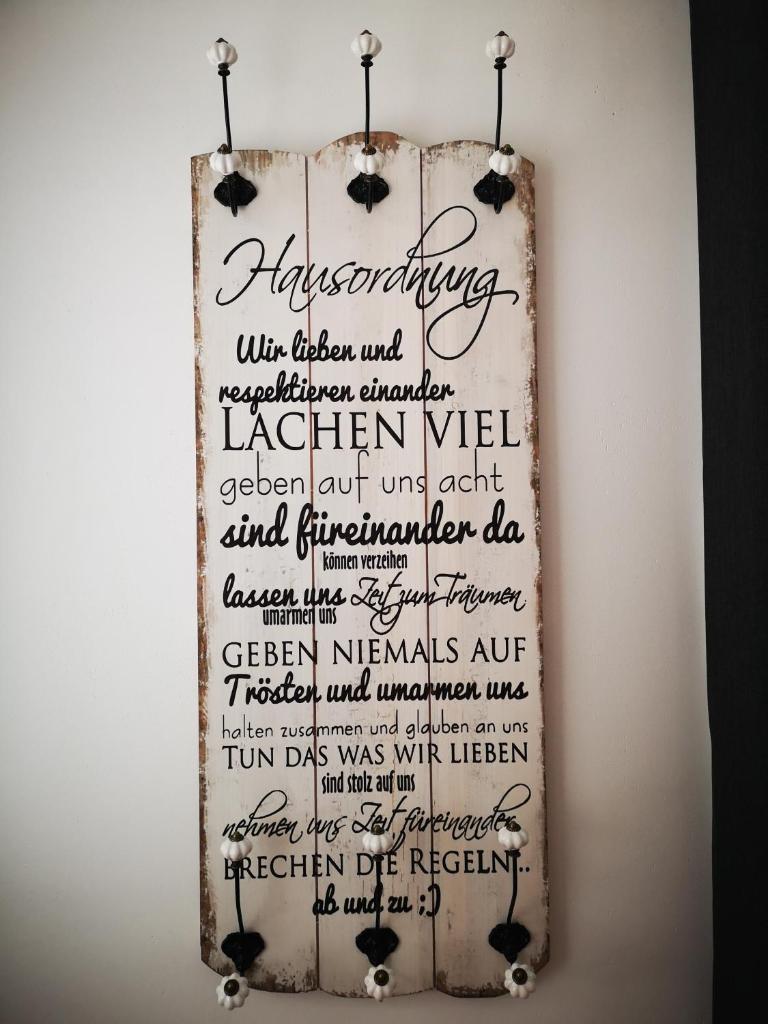 Hausordnung
Wir lieben und
respektieren einander
LACHEN VIEL
geben auf uns acht
sind füreinander da
können verzeihen
lassen uns Zeit zum Träumen
umarmen uns
GEBEN NIEMALS AUF
Trösten und umarmen uns
halten zusammen und glauben an uns
TUN DAS WAS WIR LIEBEN
sind stolz auf uns
nehmen uns Zeit füreinander
BRECHEN DIE REGELN...
ab und zu ;)